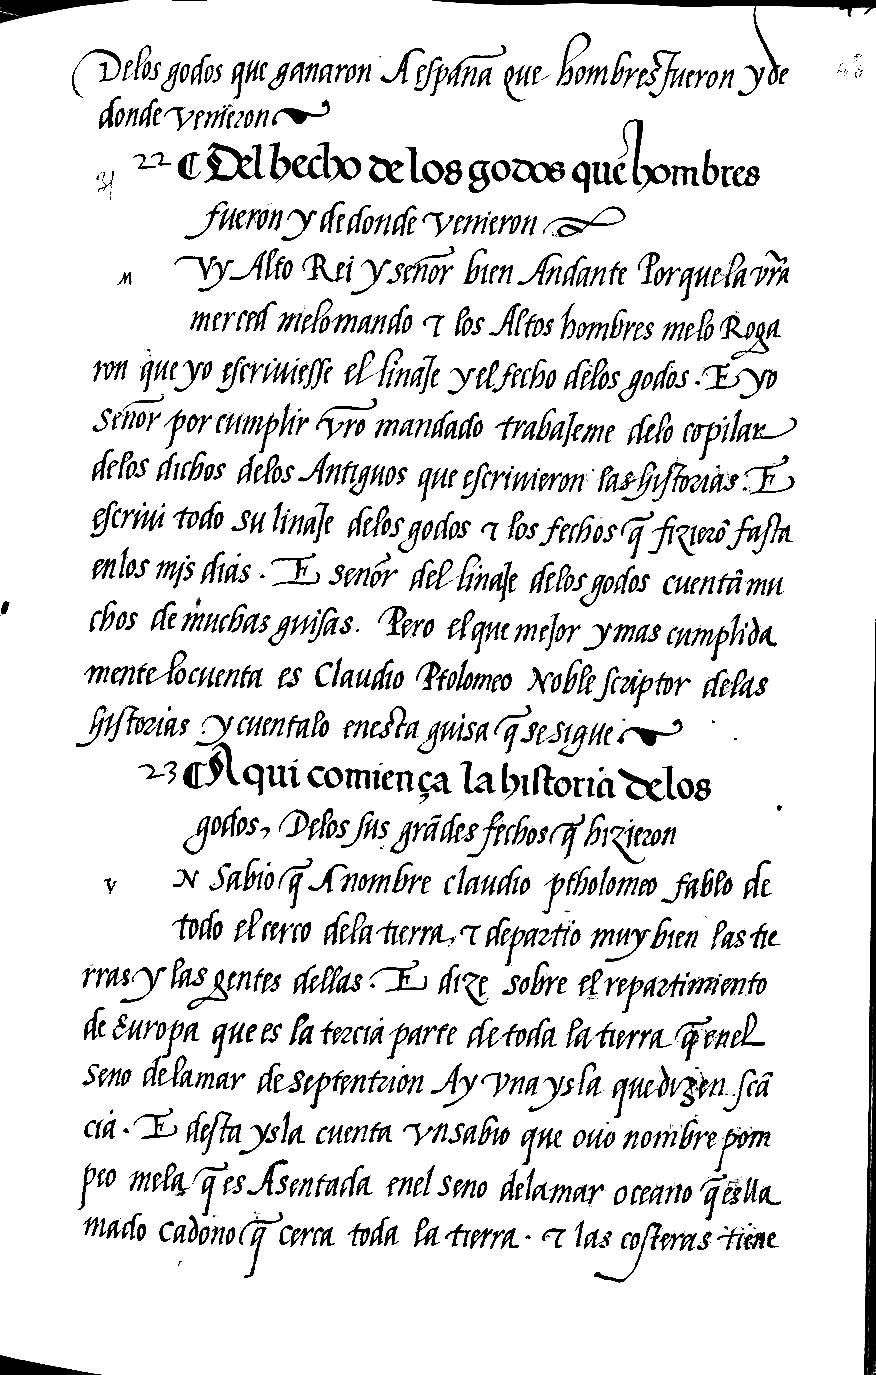 Delos godos que ganaron A españa que hombres fueron y de
donde venieron
22 ¶ Del hecho de los godos que hombres
fueron y de donde venieron
M Vy Alto Rei y señor bien Andante Porque la vr̃a
merced melo mando τ los Altos hombres melo Roga
ron que yo escriuiesse el linaje y el fecho delos godos. E yo
Señor por cumplir vr̃o mandado trabajeme delo copilar
delos dichos delos Antiguos que escriuieron las historias. E
escriui todo su linaje delos godos τ los fechos q̃ fizierõ fasta
enlos mjs dias. E señor del linaje delos godos cuentã mu
chos de muchas guisas. Pero el que mejor y mas cumplida
mente lo cuenta es Claudio Ptolomeo Noble scriptor delas
historias y cuentalo enesta guisa q̃ se sigue
23 ¶ Aqui comiença la historia delos
godos, Delos sus grãdes fechos q̃ hizieron
V N Sabio q̃ A nombre claudio ptholomeo fablo de
todo el cerco dela tierra, τ departio muy bien las tie
rras y las gentes dellas. E dize sobre el repartimiento
de Europa que es la tercia parte de toda la tierra q̃ enel
seno dela mar de septentrion Ay vna ysla que dizen scã
cia. E desta ysla cuenta vn sabio que ouo nombre pom
peo mela q̃ es Asentada enel seno dela mar oceano q̃ es lla
mado cadono q̃ cerca toda la tierra. τ las costeras tiene